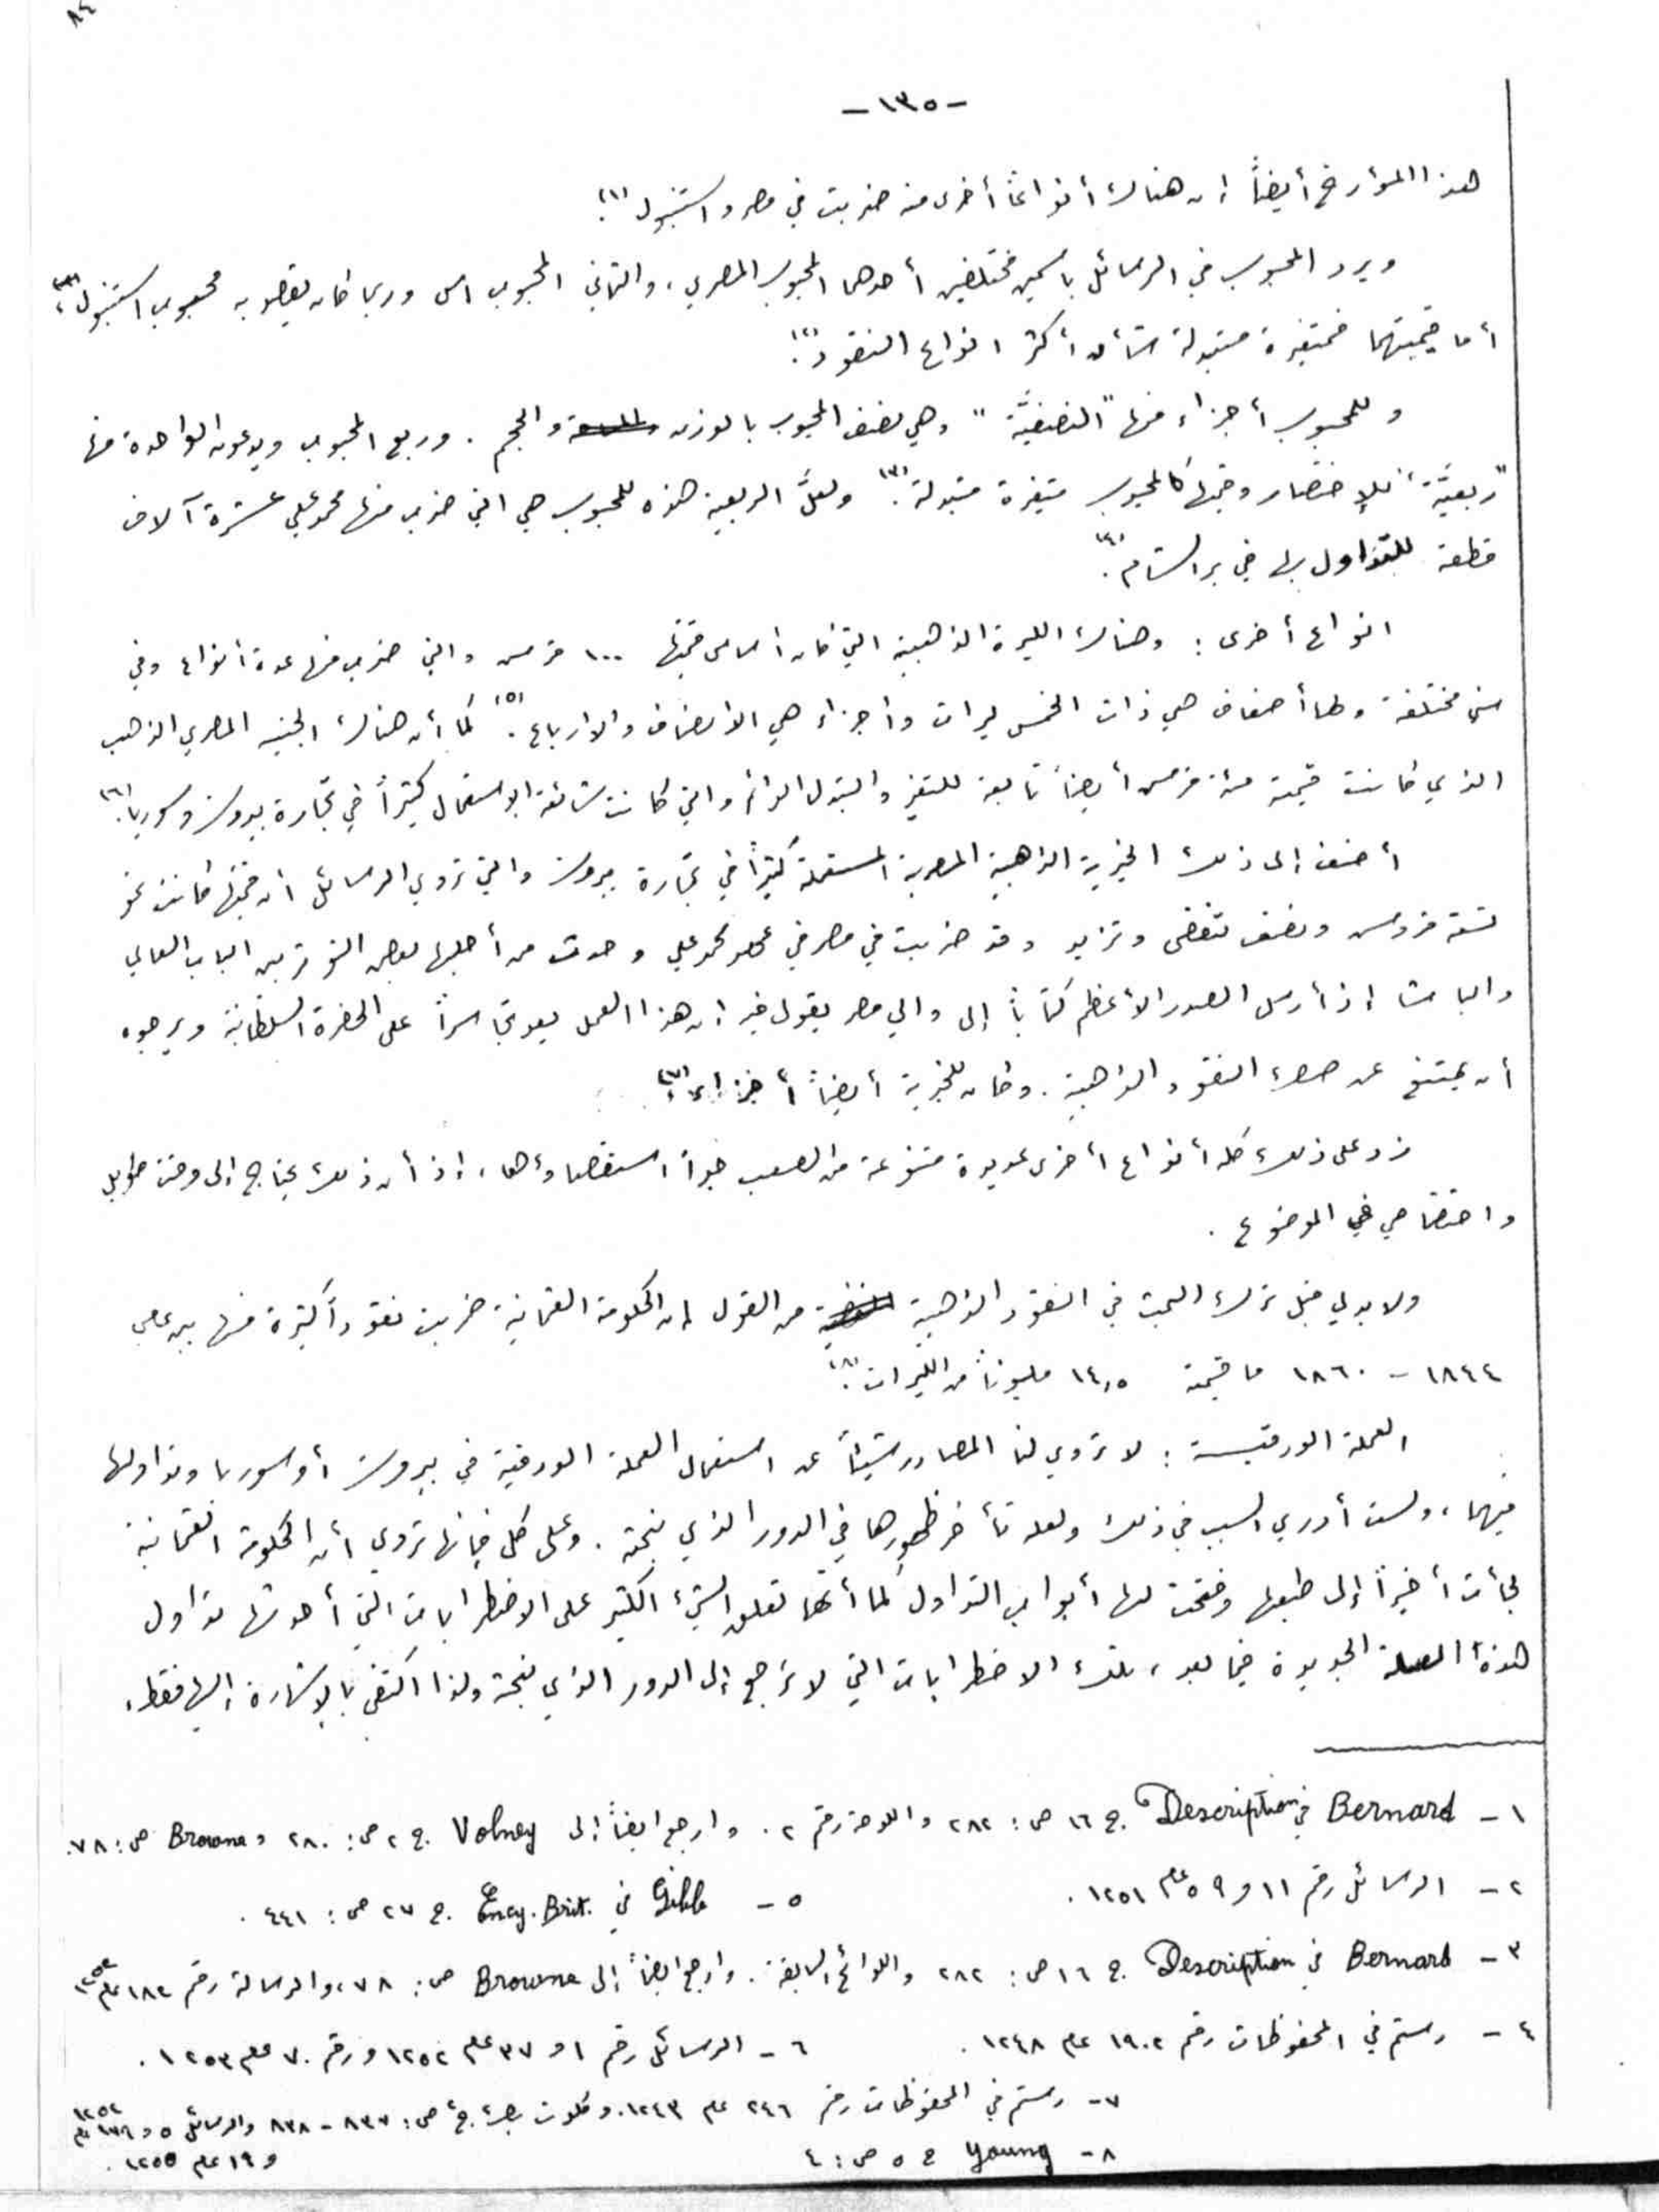 ٨٤
- ١٣٥ -
هذا المؤرخ أيضاً ان هناك أنواعاً أخرى منه ضربت في مصر واستنبول (١).
ويرد المحبوب في الرسائل باسمين مختلفين أحدهما المحبوب المصري، والثاني المحبوب اس وربما كان يقصد به محبوب استنبول،
أما قيمتهما فمتغيرة متبدلة شأن أكثر انواع النقود (٢).
وللمحبوب أجزاء منها "النصفيَّة" وهي نصف المحبوب بالوزن والحجم. وربع المحبوب ويدعون الواحدة منها
"ربعيَّة" للإختصار وقيمتها كالمحبوب متغيرة متبدلة (٣). ولعلَّ الربعية هذه للمحبوب هي التي ضرب منها محمد علي عشرة آلاف
قطعة للتداول بها في بر الشام (٤).
انواع أخرى: وهناك الليرة الذهبية التي كان أساس قيمتها ١٠٠ قرش والتي ضرب منها عدة أنواع وفي
سني مختلفة ولها أضعاف هي ذات الخمس ليرات وأجزاء هي الانصاف والارباع (٥). كما أن هناك الجنيه المصري الذهب
الذي كانت قيمته مئة قرش أيضاً تابعة للتغير والتبدل الدائم والتي كانت شائعة الاستعمال كثيراً في تجارة بيروت وسوريا (٦).
أضف إلى ذلك الخيرية الذهبية المصرية المستعملة كثيراً في تجارة بيروت والتي تروي الرسائل أن قيمتها كانت نحو
تسعة قروش ونصف تنقص وتزيد وقد ضربت في مصر في عهد محمد علي وحدث من أجلها بعض التوتر بين الباب العالي
والباشا إذ أرسل الصدر الأعظم كتاباً إلى والي مصر يقول فيه ان هذا العمل يعد تجاسراً على الحضرة السلطانية ويرجوه
أن يمتنع عن صك النقود الذهبية. وكان للخيرية أيضاً أجزاء (٧).
زد على ذلك كله أنواع أخرى عديدة متنوعة من الصعب جداً استقصاؤها، إذ أن ذلك يحتاج إلى وقت طويل
واختصاصي في الموضوع.
ولا بد لي قبل ترك البحث في النقود الذهبية من القول ان الحكومة العثمانية ضربت نقوداً كثيرة منها بين عامي
١٨٤٤ - ١٨٦٠ ما قيمته ١٤,٥ مليوناً من الليرات (٨).
العملة الورقيـــة: لا تروي لنا المصادر شيئاً عن استعمال العملة الورقية في بيروت أو سوريا وتداولها
فيهما، ولست أدري السبب في ذلك ولعله تأخر ظهورها في الدور الذي نبحثه. وعلى كل فإنها تروي أن الحكومة العثمانية
لجأت أخيراً إلى طبعها وفتحت لها أبواب التداول كما أنها تعلق الشيء الكثير على الاضطرابات التي أحدثها تداول
هذه العملة الجديدة فيما بعد، تلك الاضطرابات التي لا ترجع إلى الدور الذي نبحثه ولذا اكتفي بالإشارة إليها فقط.
١ - Bernard في Description ج ١٦ ص: ٢٨٢ واللوحة رقم ٢. وارجع ايضاً إلى Volney ج ٢ ص: ٢٨٠ و Browne ص: ٧٨.
٢ - الرسائل رقم ١١ و ٥٩ عام ١٢٥١.
٥ - Gibb في Ency. Brit. ج ٢٧ ص: ٤٤١.
٣ - Bernard في Description ج ١٦ ص: ٢٨٢ واللوائح السابقة. وارجع ايضاً إلى Browne ص: ٧٨، والرسالة رقم ١٨٢ عام
٤ - رستم في المحفوظات رقم ١٩٠٢ عام ١٢٤٨.
٦ - الرسائل رقم ١ و ٣٧ عام ١٢٥٢ ورقم ٧٠ عام ١٢٥٣.
٧ - رستم في المحفوظات رقم ٢٤٦ عام ١٢٤٣. وكلوت بك ج ص: ٨٣٧ - ٨٣٨ والرسائل ٥ و عام ١٢٥٢
و ١٩ عام ١٢٥٥.
٨ - Young ج ٥ ص: ٤